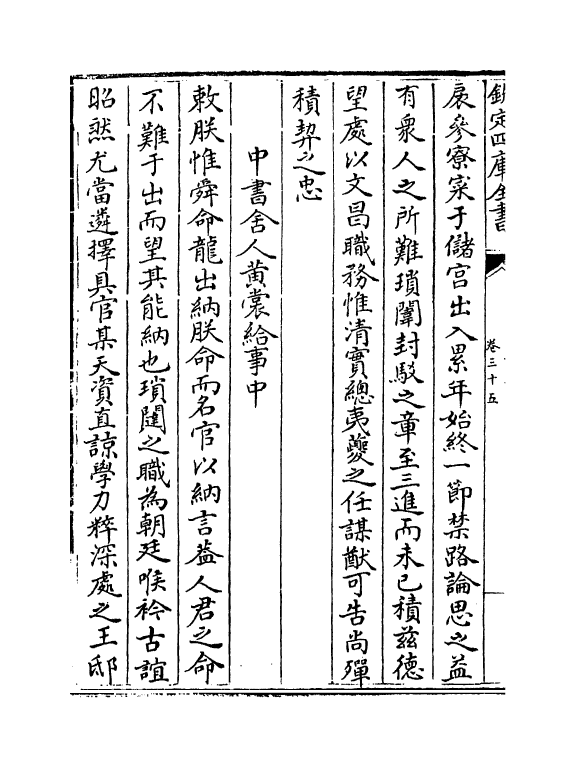 欽定四庫全書
卷三十五
展參寮寀于儲宫出入累年始終一節禁路論思之益
有衆人之所難瑣闈封駮之章至三進而未已積兹徳
望處以文昌職務惟清實總夷夔之任謀猷可告尚殫
積契之忠
中書舍人黄裳給事中
敕朕惟舜命龍出納朕命而名官以納言葢人君之命
不難于出而望其能納也瑣闥之職為朝廷喉衿古誼
昭然尤當遴擇具官某天資直諒學力粹深處之王邸